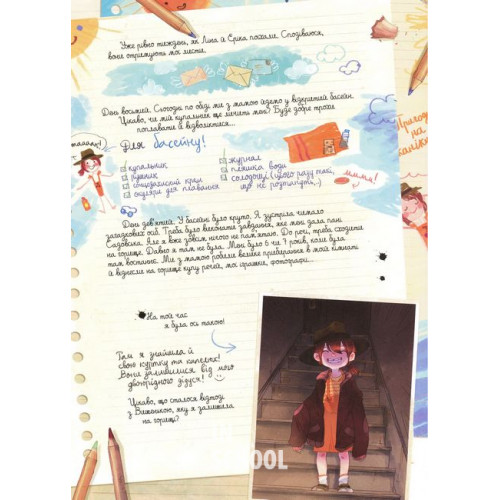 Уже рівно тиждень, як Ліна й Еріка поїхали. Сподіваюся,
вони отримують мої листи.
День восьмий. Сьогодні по обіді ми з мамою йдемо у відкритий басейн.
Цікаво, чи мій купальник ще личить мені? Буде добре трохи
поплавати й відволіктися...
Для басейну!
купальник
рушник
сонцезахисний крем
окуляри для плавання
журнал
пляшка води
солодощі (цього разу такі,
що не розтануть...)
мими!
День дев'ятий. У басейні було круто. Я зустріла чимало
загадкових осіб. Треба було виконати завдання, яке мені дала пані
Садовська. Але я вже зовсім нічого не пам'ятаю. До речі, треба сходити
на горище. Давно я там не була. Мені було 6 чи 7 років, коли була
там востаннє. Ми з мамою робили велике прибирання в моїй кімнаті
й віднесли на горище купу речей, мої іграшки, фотографії...
На той час
я була ось такою!
Там я знайшла й
свою куртку та капелюх!
Вони залишилися від мого
двоюрідного дідуся!
Цікаво, що сталося відтоді
з
яку я залишила
на горищі?
Пригоди
на
канікулах
OOL